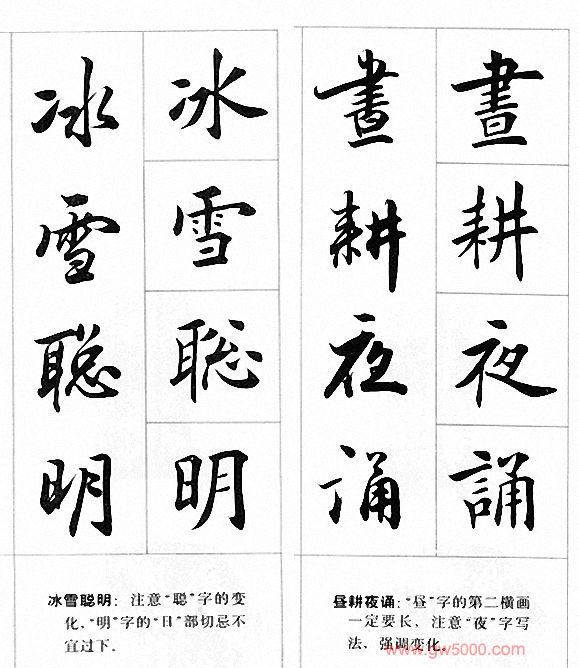 冰雪聪明
冰雪聡明
冰雪聪明：注意“聪”字的变
化、“明”字的“日”部切忌不
宜过下。
晝耕夜诵
晝耕夜誦
昼耕夜诵：“昼”字的第二横画
一定要长，注意“夜”字写
法，强调变化。
www.gw5000.com